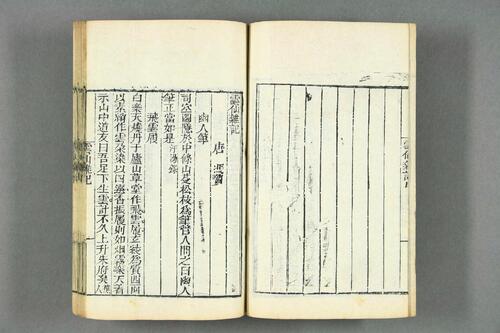 雲仙雜記
唐 馮贄
幽人筆
司空圖隱於中條山芟松枝爲筆管人問之曰幽人
筆正當如是
飛雲履
白樂天燒丹于廬山草堂作飛雲履玄綾爲質四面
以素絹作雲朶染以四選香振履則如烟霧樂天着
示山中道友曰吾足下生雲計不久上升朱府矣
雲仙雜記